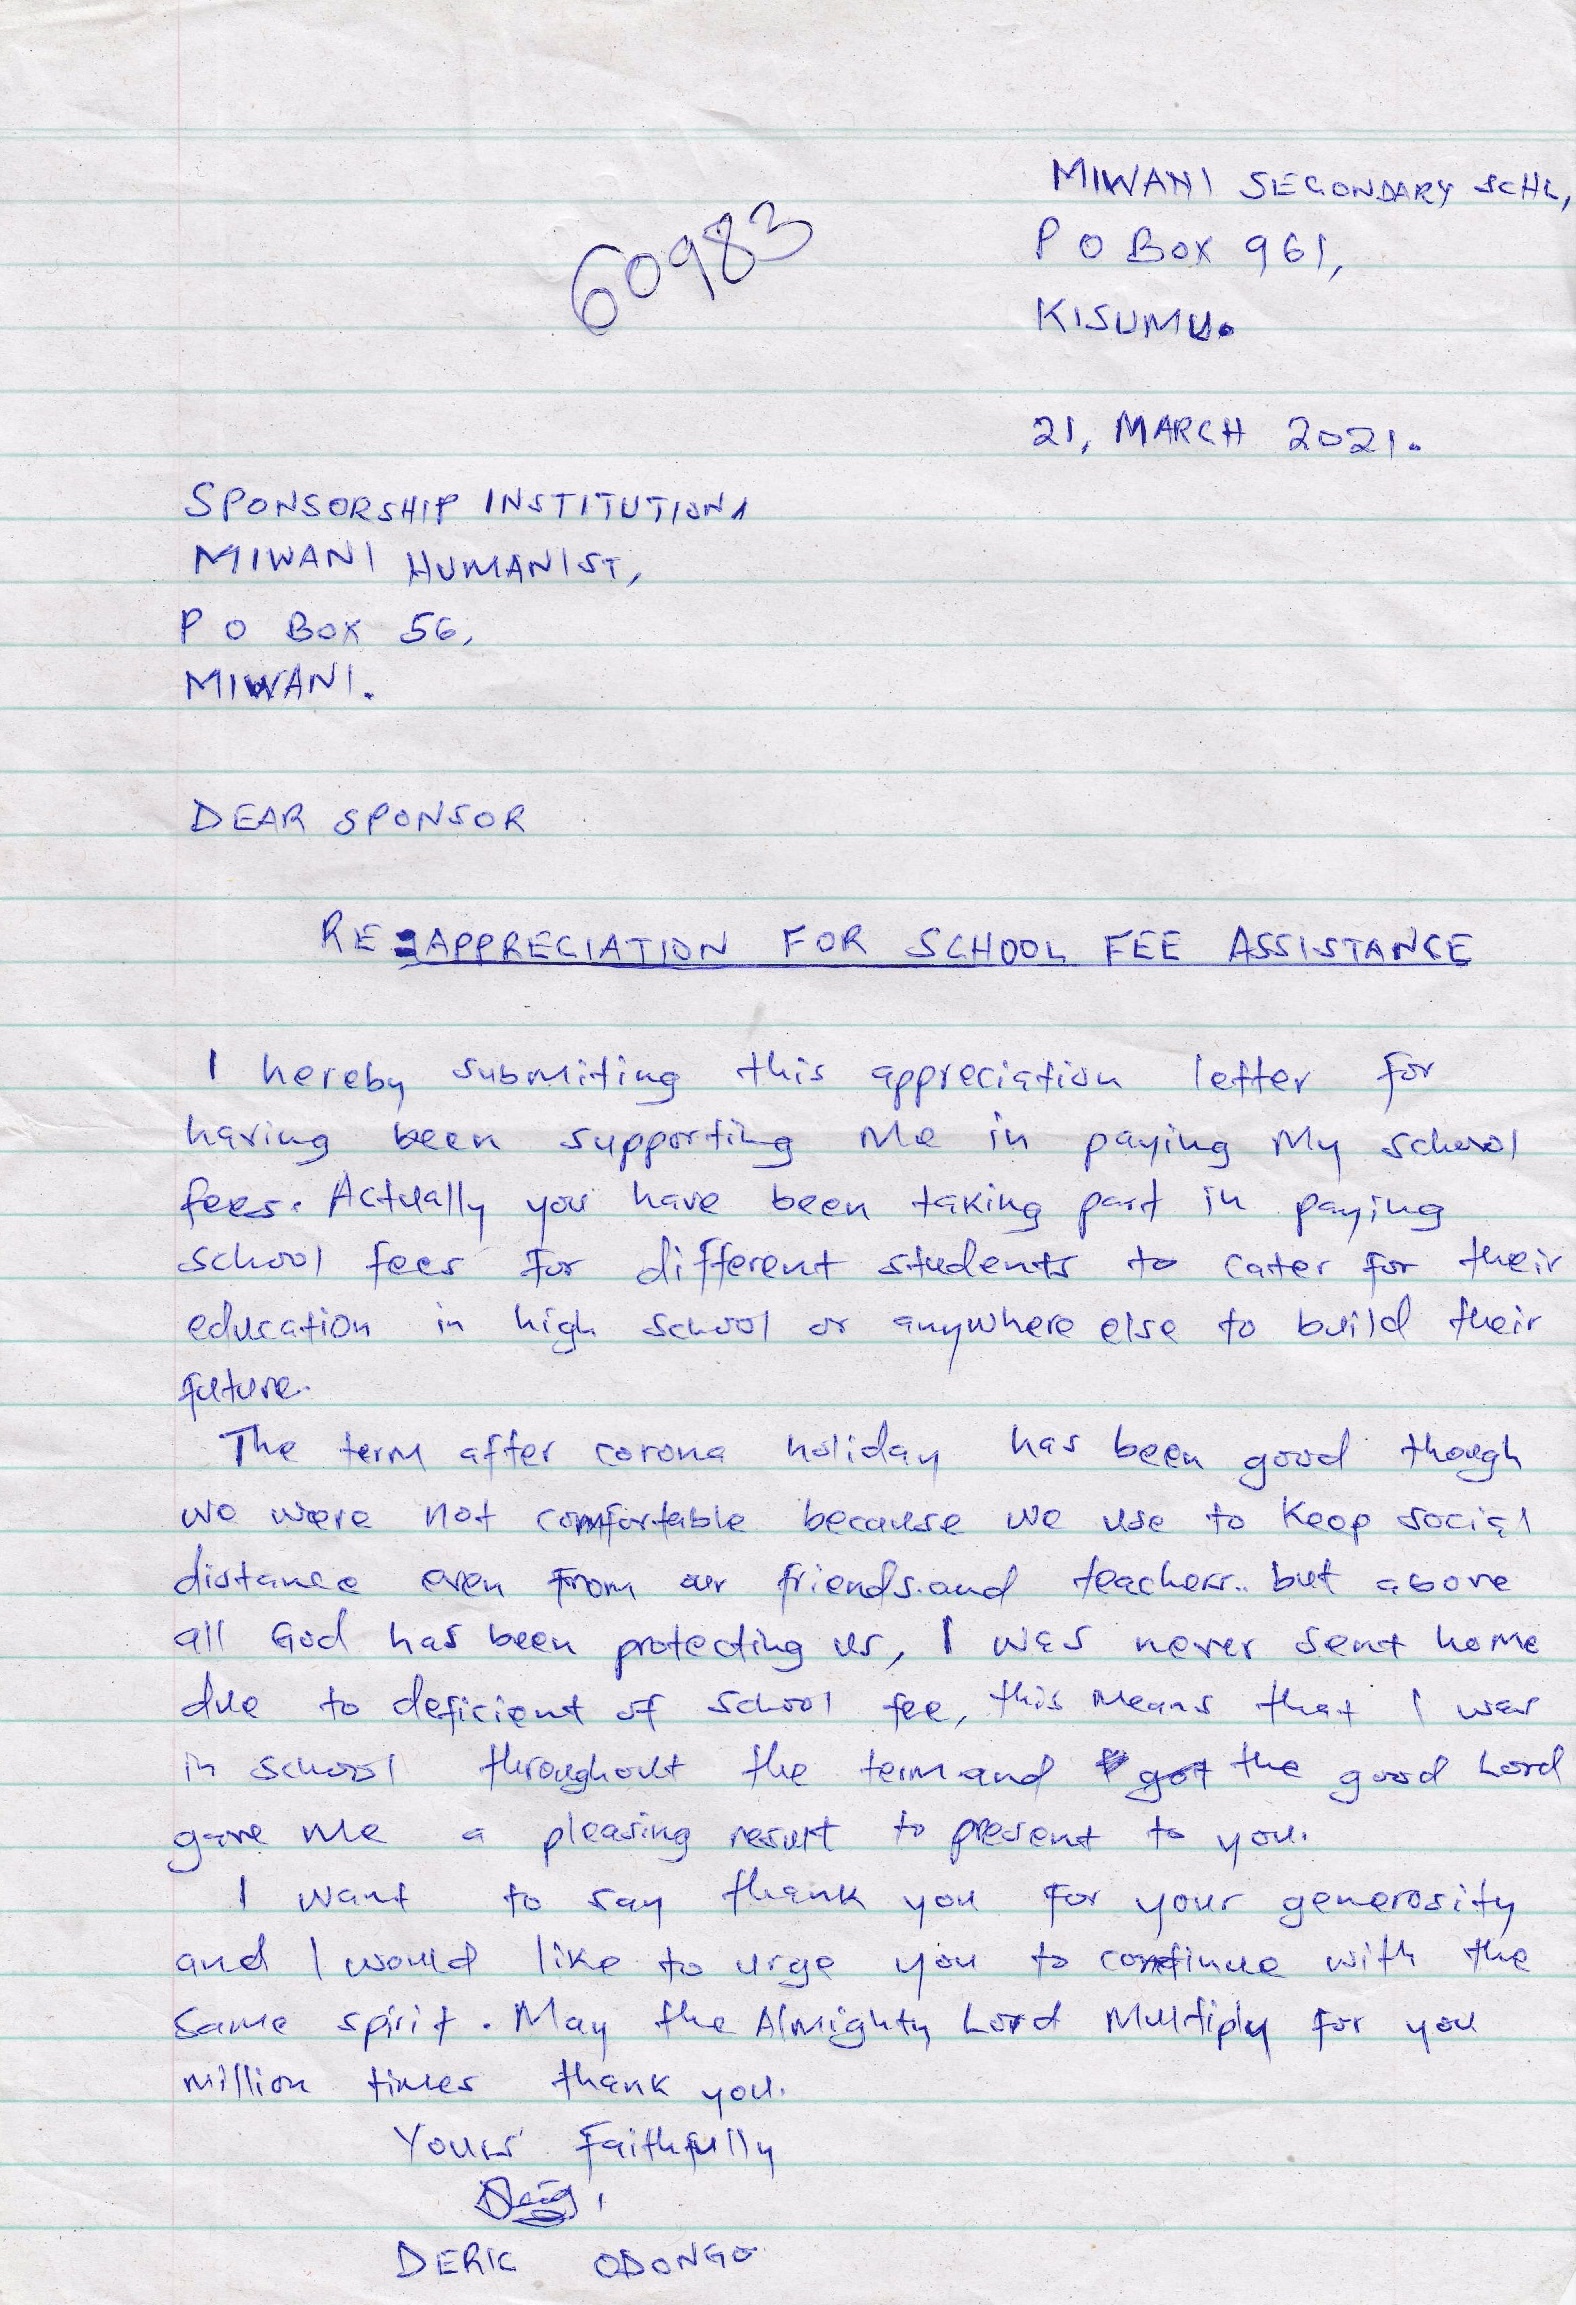 MIWANI SECONDARY SCHL,
60983
P O BOX 961,
KISUMU.
21, MARCH 2021.
SPONSORSHIP INSTITUTION,
MIWANI HUMANIST,
P O BOX 56,
MIWANI.
DEAR SPONSOR
RE: APPRECIATION FOR SCHOOL FEE ASSISTANCE
I hereby submiting this appreciation letter for
having been supporting me in paying my school
fees. Actually you have been taking part in paying
school fees for different students to cater for their
education in high school or anywhere else to build their
future.
The term after corona holiday has been good though
we were not comfortable because we use to keep social
distance even from our friends.and teachers.. but above
all God has been protecting us, I was never sent home
due to deficient of school fee, this means that I was
in school throughout the term and got the good Lord
gave me a pleasing result to present to you.
I want to say thank you for your generosity
and I would like to urge you to continue with the
same spirit. May the Almighty Lord multiply for you
million times thank you.
Yours Faithfully
DERIC ODONGO